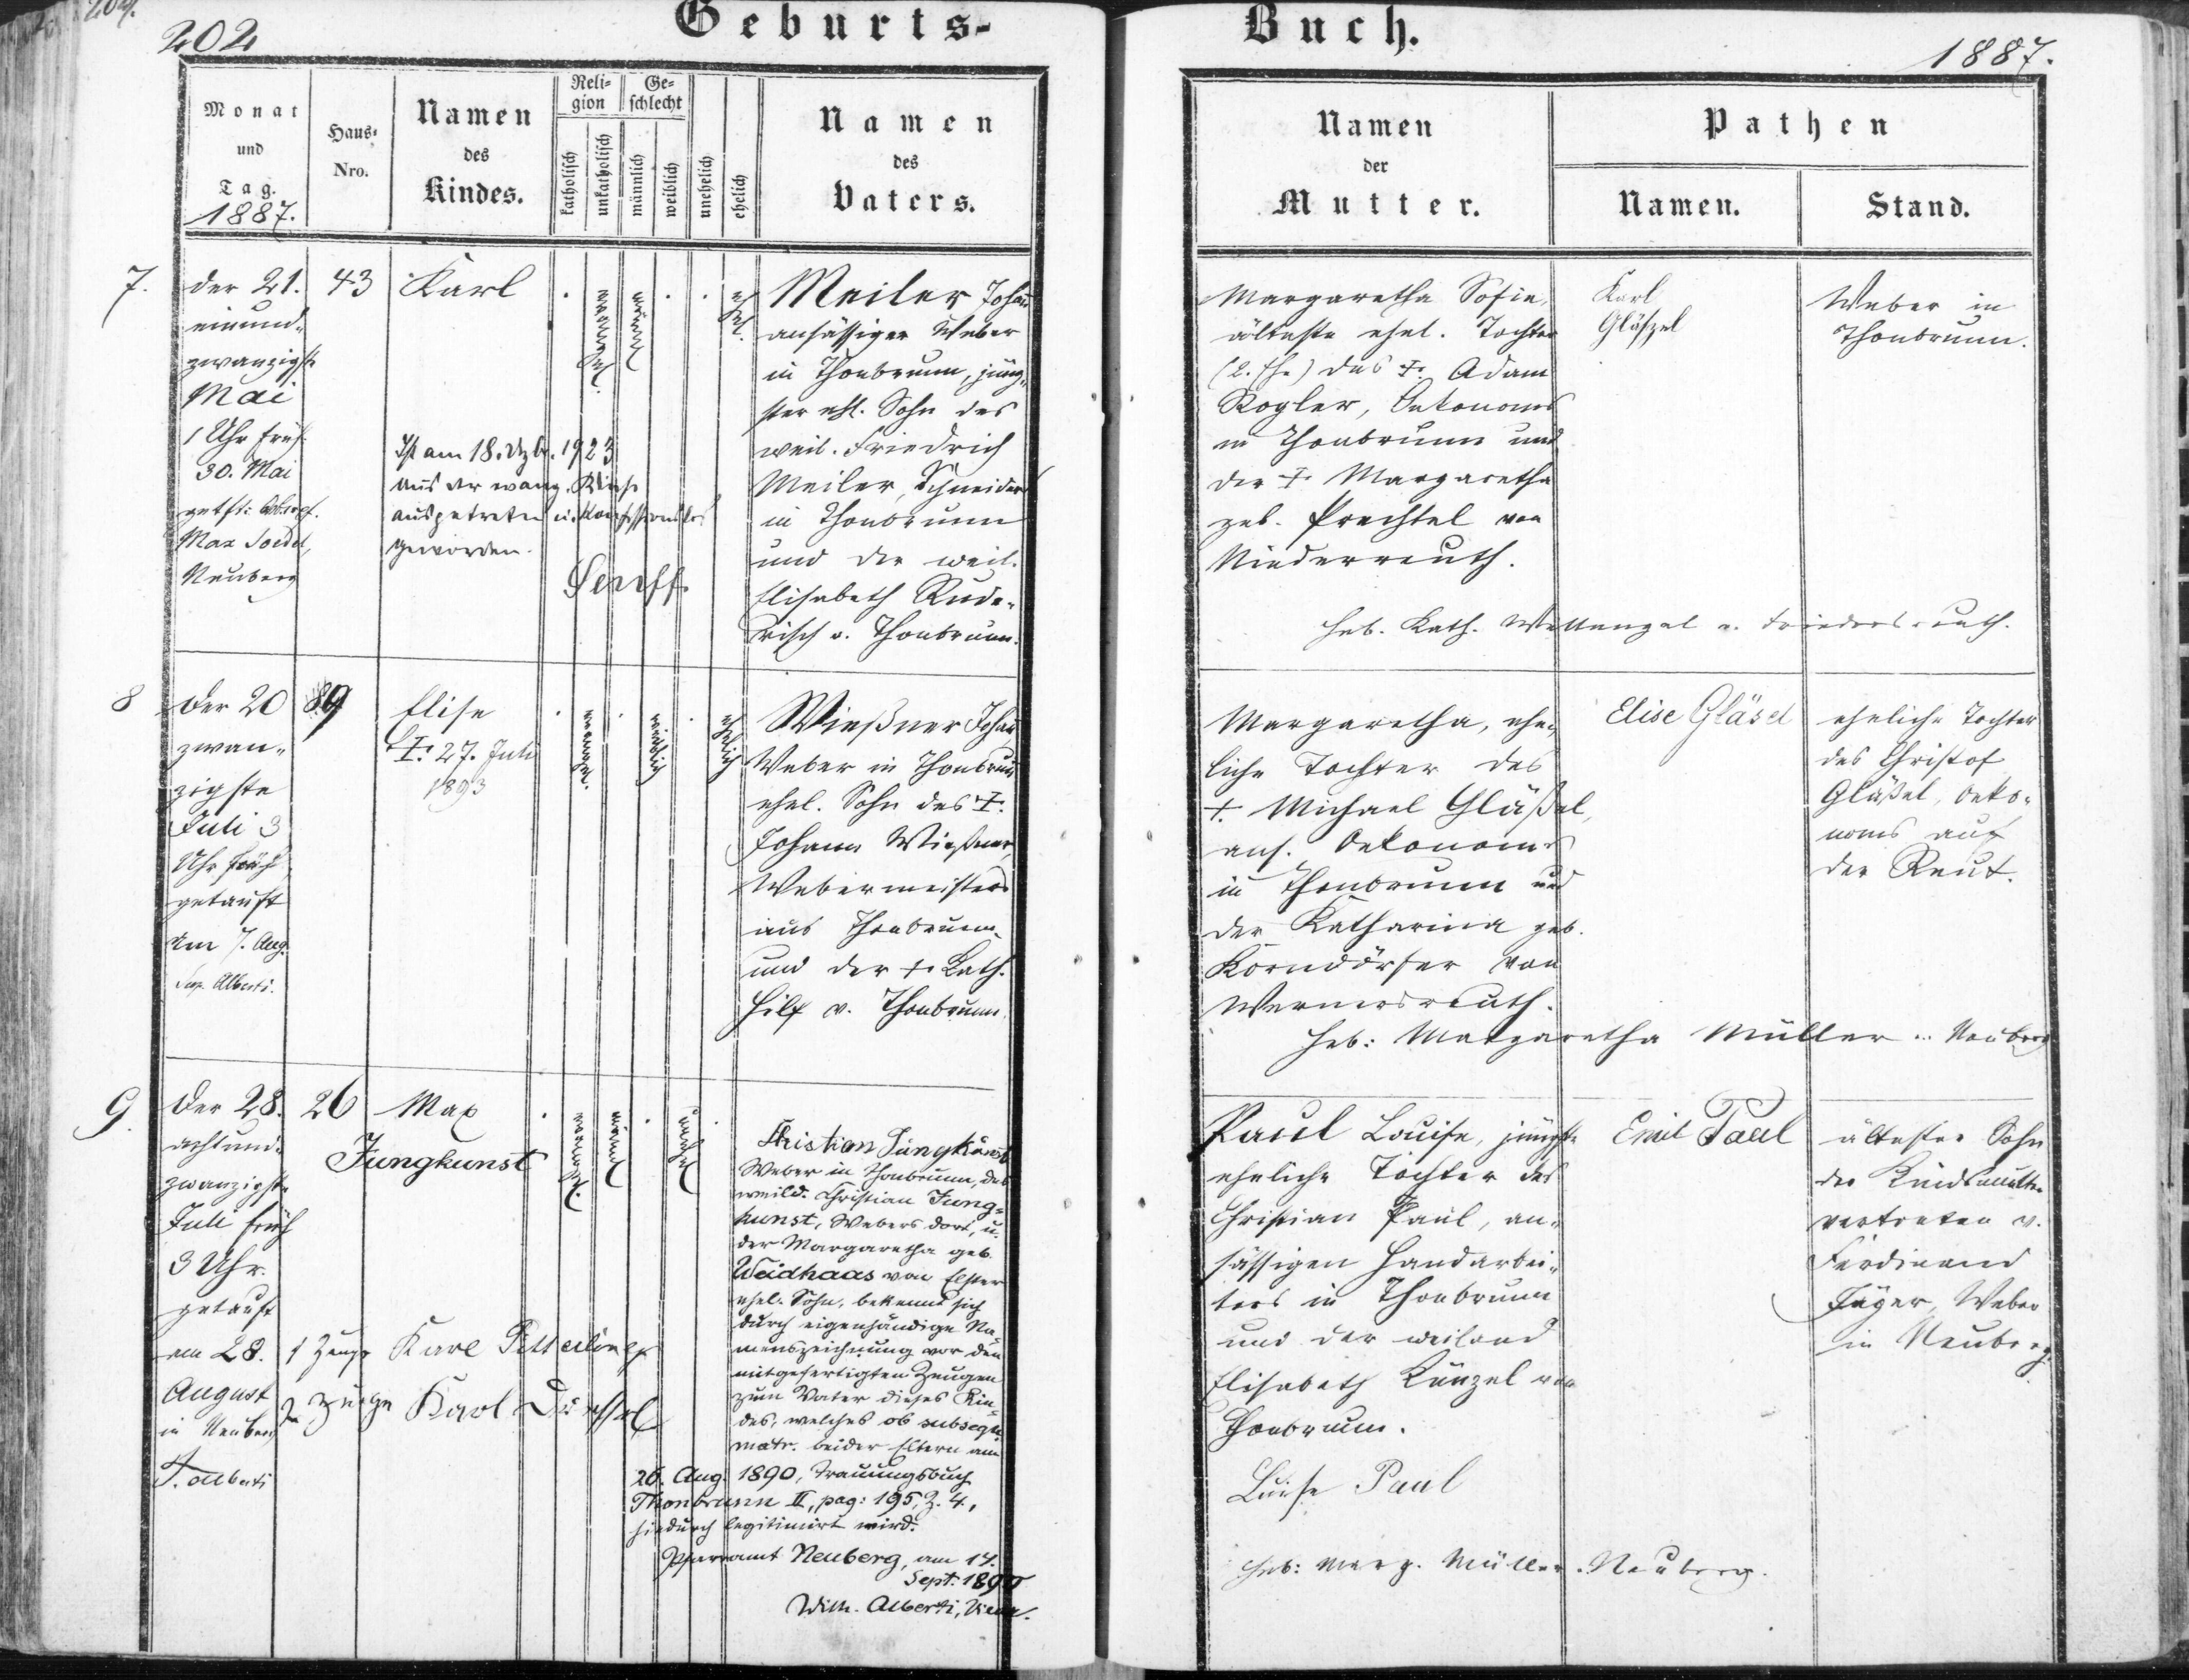 202
Geburts-
Buch.
1887.
Monat
und
Tag.
1887.
Haus-
Nro.
Namen
des
Kindes.
Reli-
gion
katholisch
unkatholisch
Ge-
schlecht
männlich
weiblich
unehelich
ehelich
Namen
des
Vaters.
Namen
der
Mutter.
Pathen
Namen.
Stand.
7.
der 21.
einund-
zwanzigste
Mai
1 Uhr früh
30. Mai
Max Seidel,
Neuberg
43
Karl
Ist am 18. Dzbr. 1923
aus der evang. Kirche
ausgetreten u. konfessionslos
geworden.
Meiler Johann
ansässiger Weber
in Thonbrunn, jüng-
ster ehl. Sohn des
weil. Friedrich
Meiler, Schneiders
in Thonbrunn
und der weil.
Elisabeth Rude-
risch v. Thonbrunn.
Margaretha Sofie,
älteste ehel. Tochter
(2. Ehe) des † Adam
Rogler, Oekonoms
in Thonbrunn und
der † Margaretha
geb. Prechtel von
Niederreuth.
Karl
Gläßel
Weber in
Thonbrunn.
Heb. Kath. Wettengel v. Friedersreuth.
8
der 20
zwan-
zigste
Juli 3
Uhr früh
getauft
am 7. Aug.
Sup. Alberti.
89
Elise
† 27. Juli
1893
ehelich
weiblich
Wießner Johann
Weber in Thonbrunn
ehel. Sohn des †
Johann Wießner,
Webermeisters
aus Thonbrunn
und der † Kath.
Hilf v. Thonbrunn.
Margaretha, ehe-
liche Tochter des
† Michael Gläßel,
ans. Oekonoms
in Thonbrunn und
der Katharina geb.
Korndörfer von
Wernersreuth.
Elise Gläsel
eheliche Tochter
des Christof
Gläßel, Oeko-
noms auf
der Reut.
Heb: Margaretha Müller v. Neuberg
9.
der 28.
achtund-
zwanzigste
Juli früh
3 Uhr.
getauft
am 28.
August
in Neuberg
T. Alberti
26
Max
Jungkunst
1 Zeuge Karl
2 Zeuge Karl
Christian Jungkunst
Weber in Thonbrunn, des
weild. Christian Jung-
kunst, Webers dort, u.
der Margaretha geb.
Weidhaas von Elster
ehel. Sohn, bekennt sich
durch eigenhändige Na-
menszeichnung vor den
mitgefertigten Zeugen
zum Vater dieses Kin-
des, welches ob subsequ.
matr. beider Eltern am
26. Aug. 1890, Trauungsbuch
Thonbrunn II, pag: 195, Z. 4,
hiedurch legitimirt wird.
Pfarramt Neuberg, am 14.
Sept: 1890
Wilh. Alberti, Vicar.
Paul Louise, jüngste
eheliche Tochter des
Christian Paul, an-
sässigen Handarbei-
ters in Thonbrunn
und der weiland
Elisabeth Künzel von
Thonbrunn.
Luise Paul
Emil Paul
ältester Sohn
der Kindsmutter
vertreten v.
Ferdinand
Jäger, Weber
in Neuberg.
Heb: Marg. Müller. Neuberg.